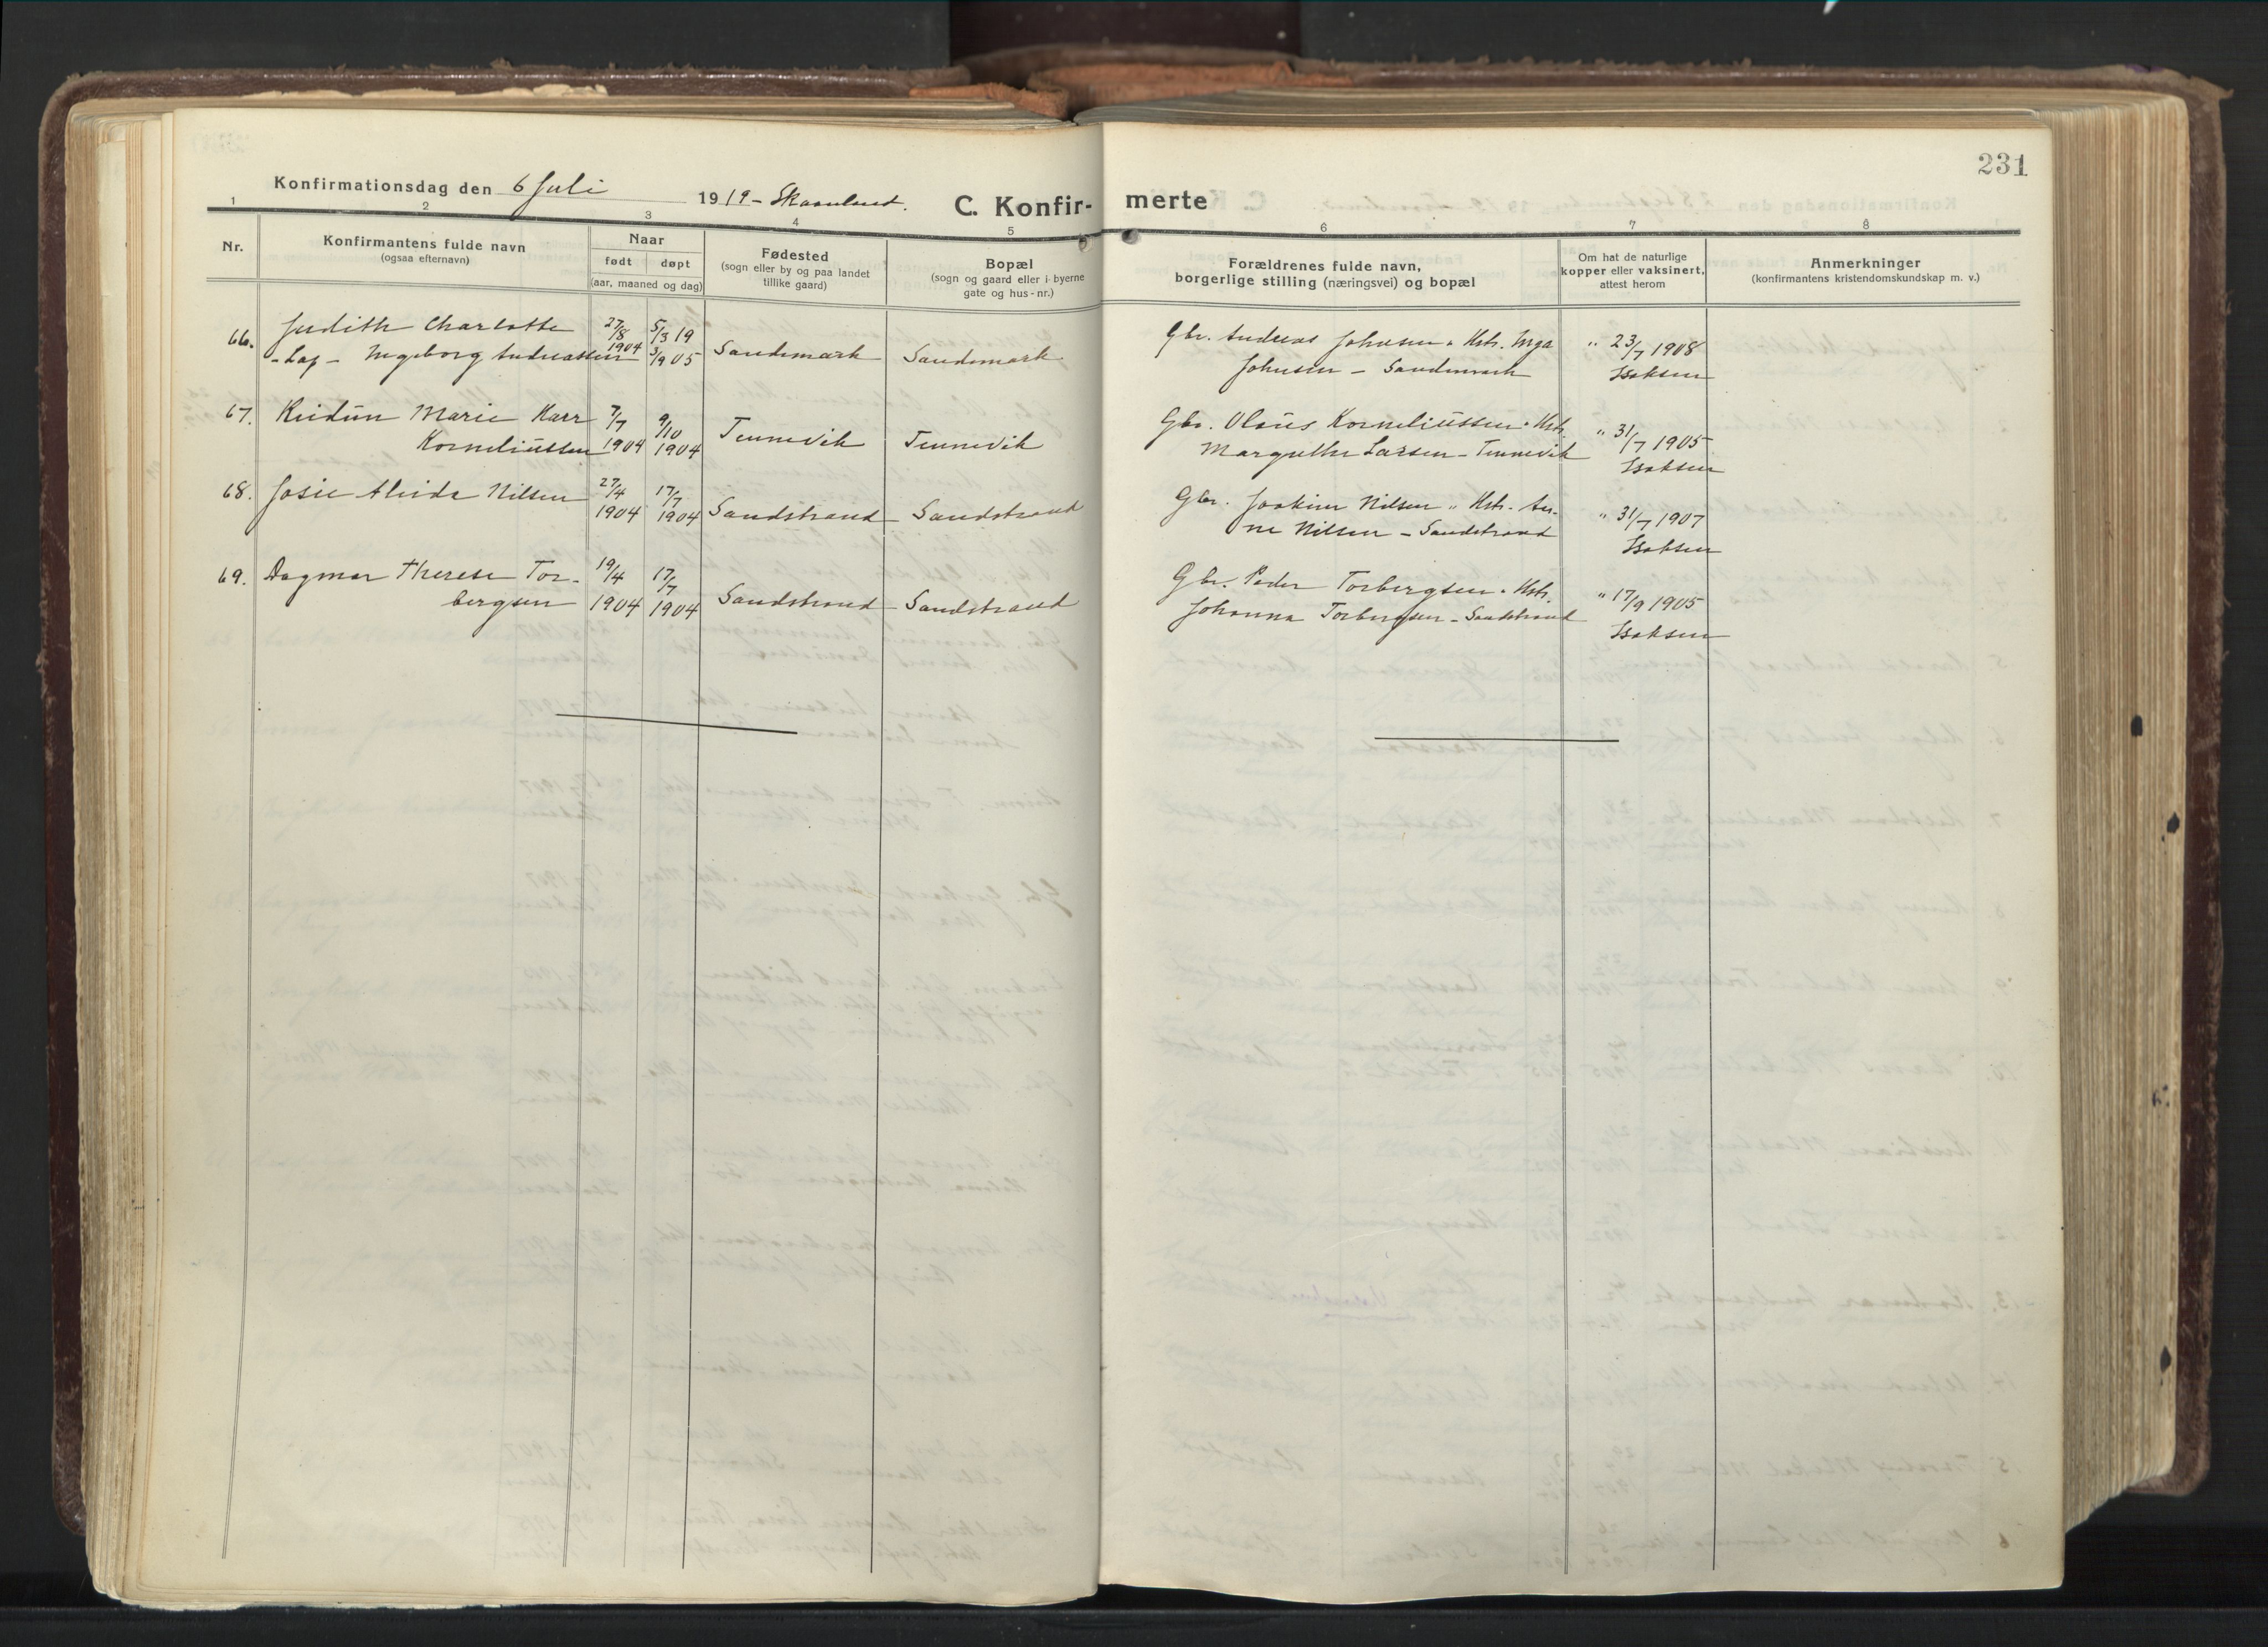 231
Konfirmationsdag den 6 Juli 1919 - Skaanland.
C. Konfirmerte
1 2 3 4 5 6 7 8
Nr.
Konfirmantens fulde navn
(ogsaa efternavn)
Naar
født døpt
(aar, maaned og dag)
Fødested
(sogn eller by og paa landet
tillike gaard)
Bopæl
(sogn og gaard eller i byerne
gate og hus-nr.)
Forældrenes fulde navn,
borgerlige stilling (næringsvei) og bopæl
Om hat de naturlige
kopper eller vaksinert,
attest herom
Anmerkninger
(konfirmantens kristendomskundskap m. v.)
66. Judith Charlotte 27/8 5/3 19 Gbr. Andreas Johnsen " Hstr. Inga " 23/7 1908
- Lap - Ingeborg Andreassen 1904 3/9 05 Sandemark Sandemark Johnsen - Sandemark Isaksen
67. Reidùn Marie Karr 7/7 9/10 Gbr. Olaùs Korneliùssen " Hstr. " 31/7 1905
Korneliùssen 1904 1904 Tennevik Tennevik Margrethe Larsen - Tennevik Isaksen
68. Josie Alvida Nilsen 27/4 17/7 Gbr. Joakim Nilsen " Hstr. An- " 31/7 1907
1904 1904 Sandstrand - Sandstrand ne Nilsen - Sandstrand Isaksen
69. Dagmar Therese Tor- 19/4 17/7 Gbr. Peder Torbergsen " Hstr. " 17/9 1905
bergsen 1904 1904 Sandstrand - Sandstrand Johanna Torbergsen - Sandstrand Isaksen